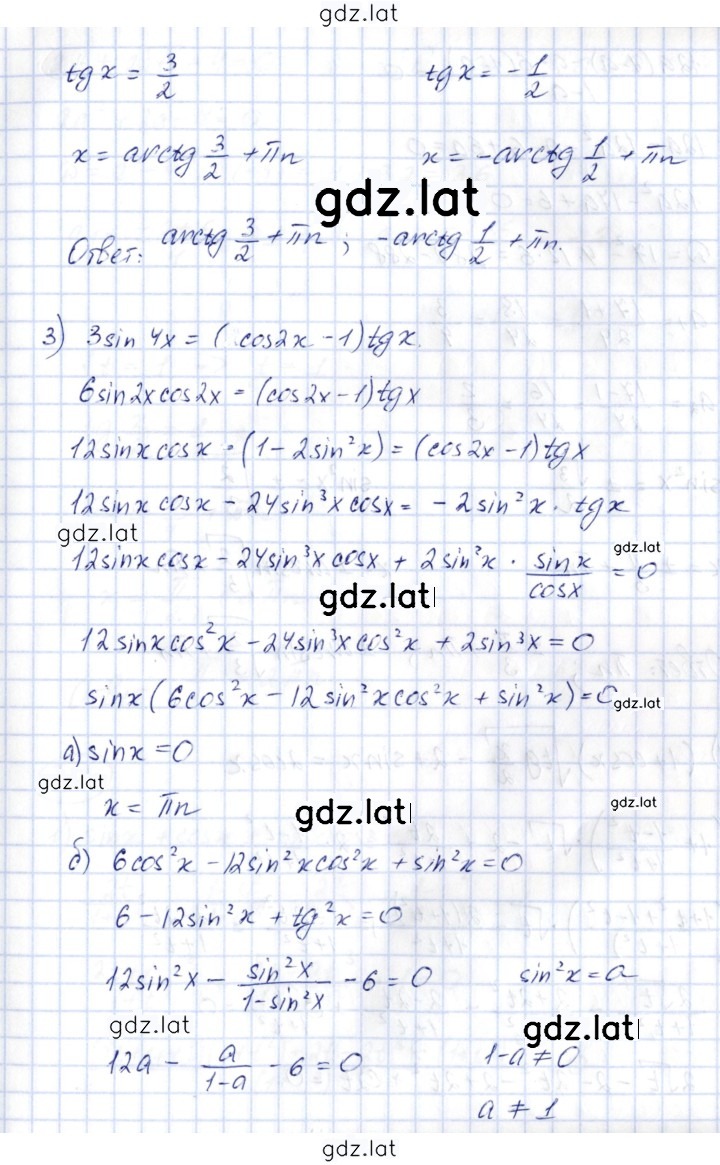 gdz.lat
tg x = 3/2 tg x = -1/2
x = arctg 3/2 + πn x = -arctg 1/2 + πn
gdz.lat
Ответ: arctg 3/2 + πn ; -arctg 1/2 + πn.
3) 3sin 4x = (cos2x - 1)tg x.
6sin2xcos2x = (cos2x - 1)tgx
12sinxcosx · (1 - 2sin²x) = (cos2x - 1)tgx
12sinx cosx - 24sin³x cosx = - 2sin²x · tgx
gdz.lat
gdz.lat
12sinxcosx - 24sin³x cosx + 2sin²x · sinx/cosx = 0
gdz.lat
12sinxcos²x - 24sin³xcos²x + 2sin³x = 0
sinx(6cos²x - 12sin²xcos²x + sin²x) = 0
gdz.lat
а) sinx = 0
gdz.lat
x = πn
gdz.lat
gdz.lat
б) 6cos²x - 12sin²xcos²x + sin²x = 0
6 - 12sin²x + tg²x = 0
12sin²x - sin²x/1-sin²x - 6 = 0 sin²x = a
gdz.lat
gdz.lat
12a - a/1-a - 6 = 0 1-a ≠ 0
a ≠ 1
gdz.lat